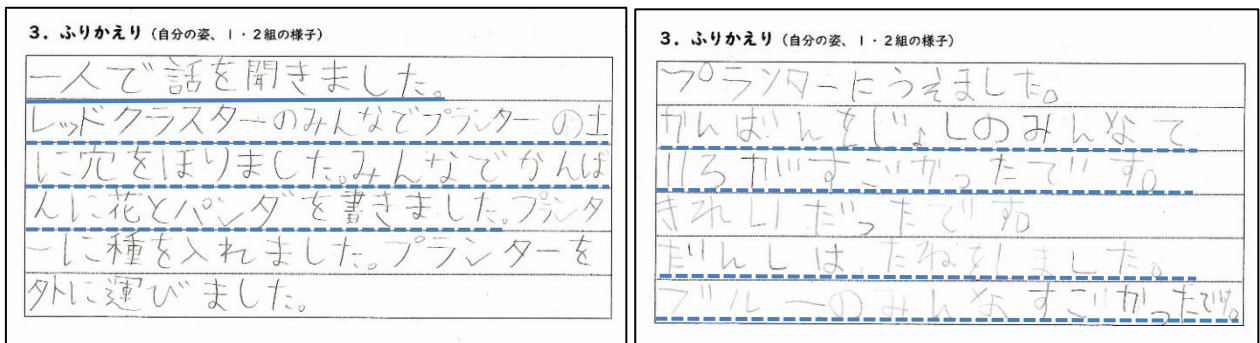 3．ふりかえり（自分の姿、１・２組の様子）
一人で話を聞きました。
レッドクラスターのみんなでプランターの土
に穴をほりました。みんなでかんば
んに花とパンダを書きました。プランタ
ーに種を入れました。プランターを
外に運びました。
3．ふりかえり（自分の姿、１・２組の様子）
プランターにうえました。
かんばんをじょしのみんなて
いろがすごかったです。
きれいだったです。
だんしは、たねをしました。
ブルーのみんなすごかったです。